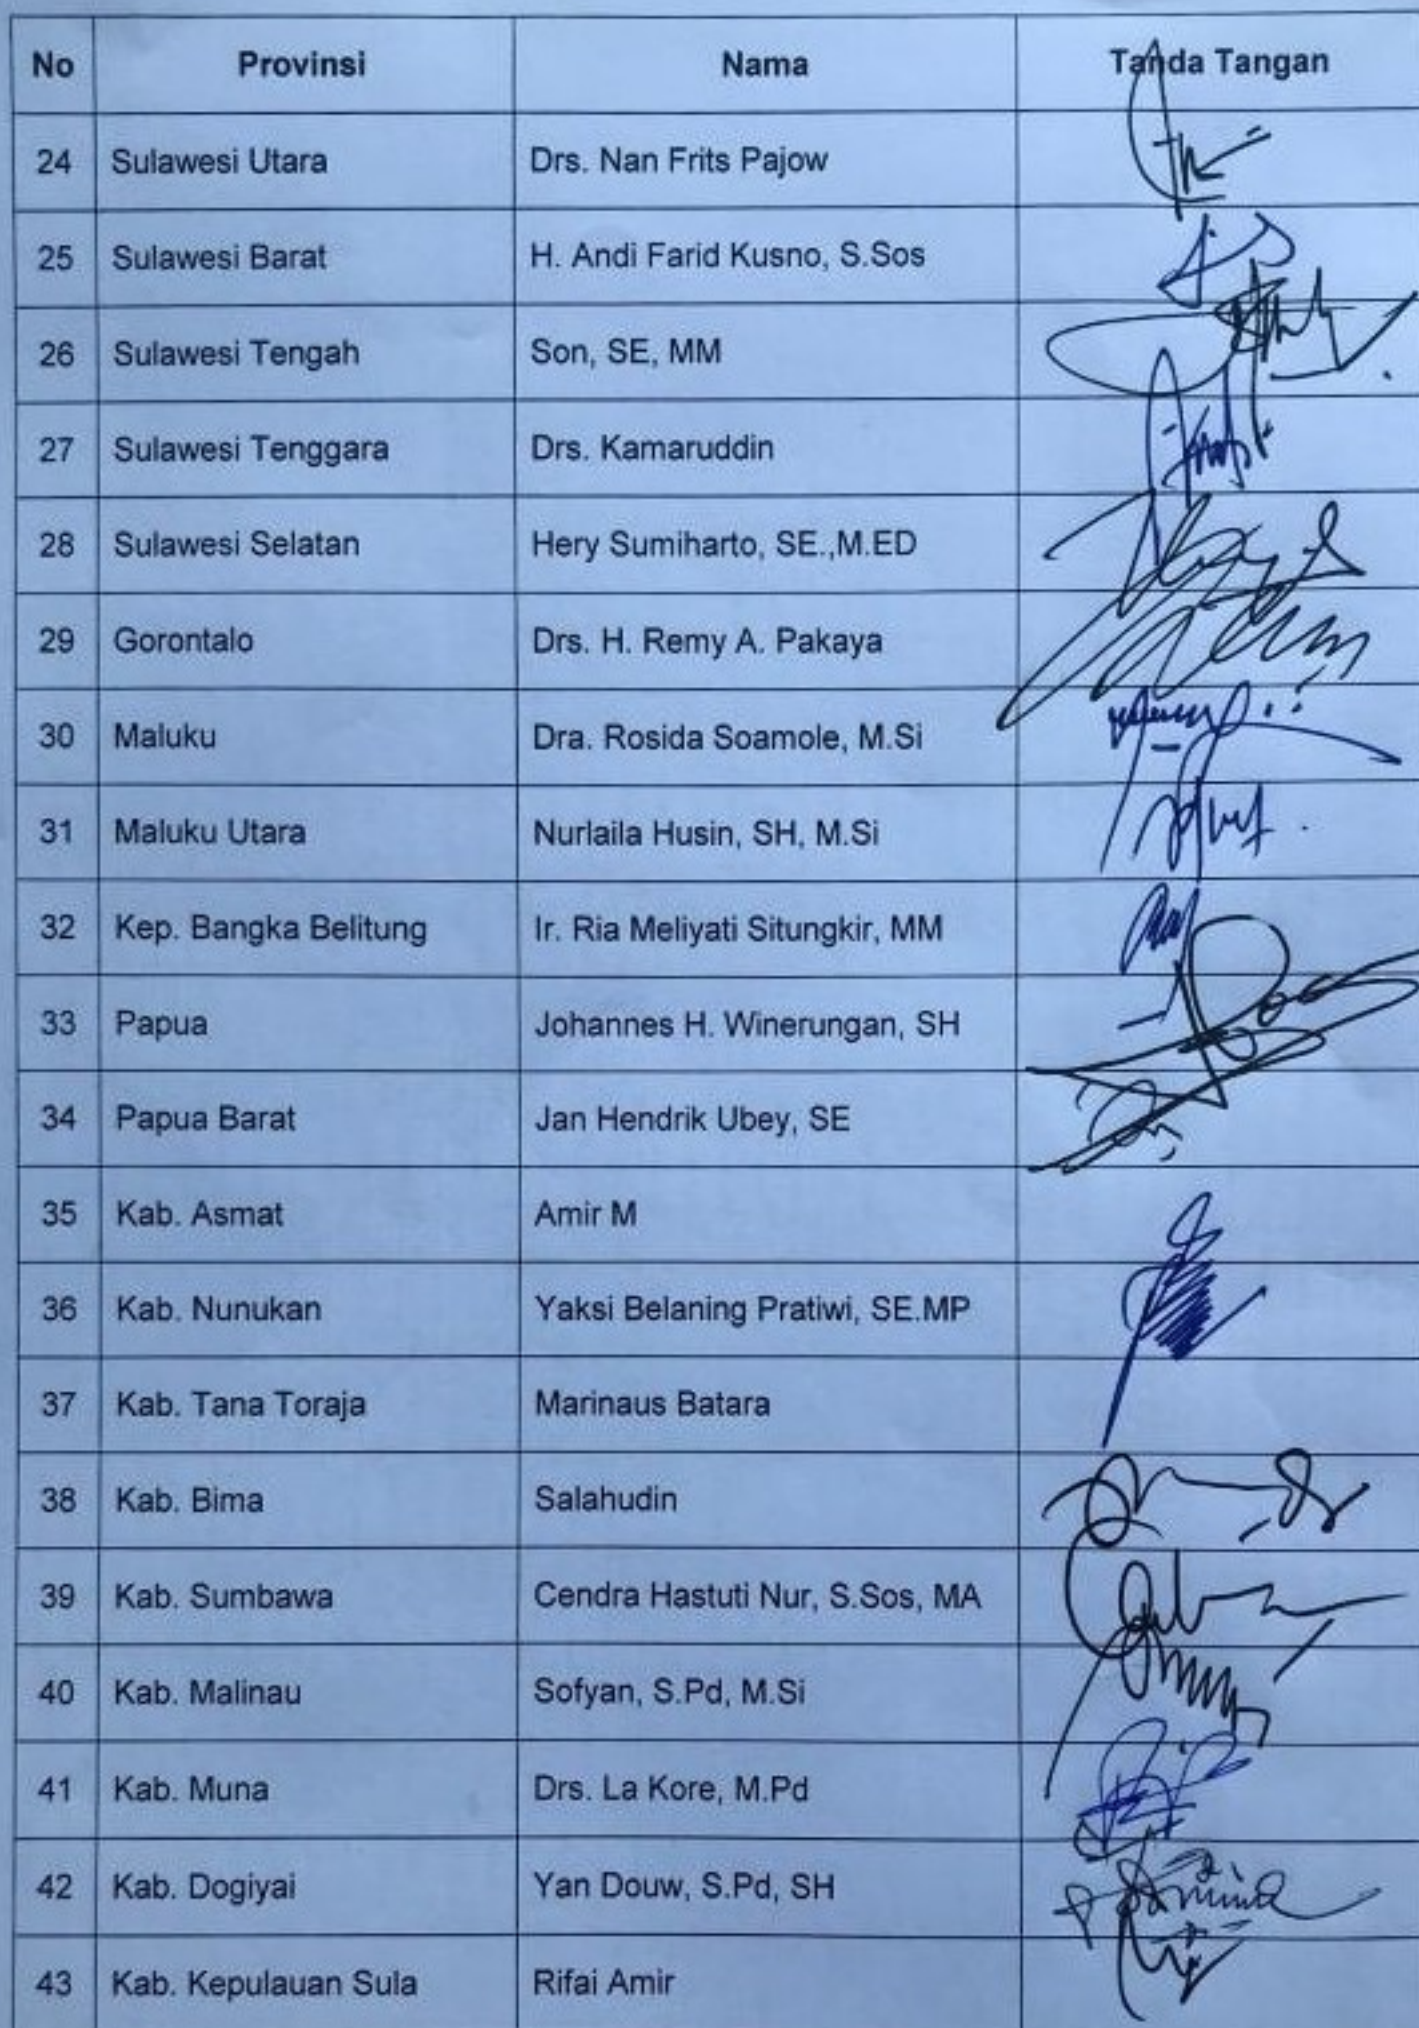 No Provinsi Nama Tanda Tangan
24 Sulawesi Utara Drs. Nan Frits Pajow
25 Sulawesi Barat H. Andi Farid Kusno, S.Sos
26 Sulawesi Tengah Son, SE, MM
27 Sulawesi Tenggara Drs. Kamaruddin
28 Sulawesi Selatan Hery Sumiharto, SE.,M.ED
29 Gorontalo Drs. H. Remy A. Pakaya
30 Maluku Dra. Rosida Soamole, M.Si
31 Maluku Utara Nurlaila Husin, SH, M.Si
32 Kep. Bangka Belitung Ir. Ria Meliyati Situngkir, MM
33 Papua Johannes H. Winerungan, SH
34 Papua Barat Jan Hendrik Ubey, SE
35 Kab. Asmat Amir M
36 Kab. Nunukan Yaksi Belaning Pratiwi, SE.MP
37 Kab. Tana Toraja Marinaus Batara
38 Kab. Bima Salahudin
39 Kab. Sumbawa Cendra Hastuti Nur, S.Sos, MA
40 Kab. Malinau Sofyan, S.Pd, M.Si
41 Kab. Muna Drs. La Kore, M.Pd
42 Kab. Dogiyai Yan Douw, S.Pd, SH
43 Kab. Kepulauan Sula Rifai Amir